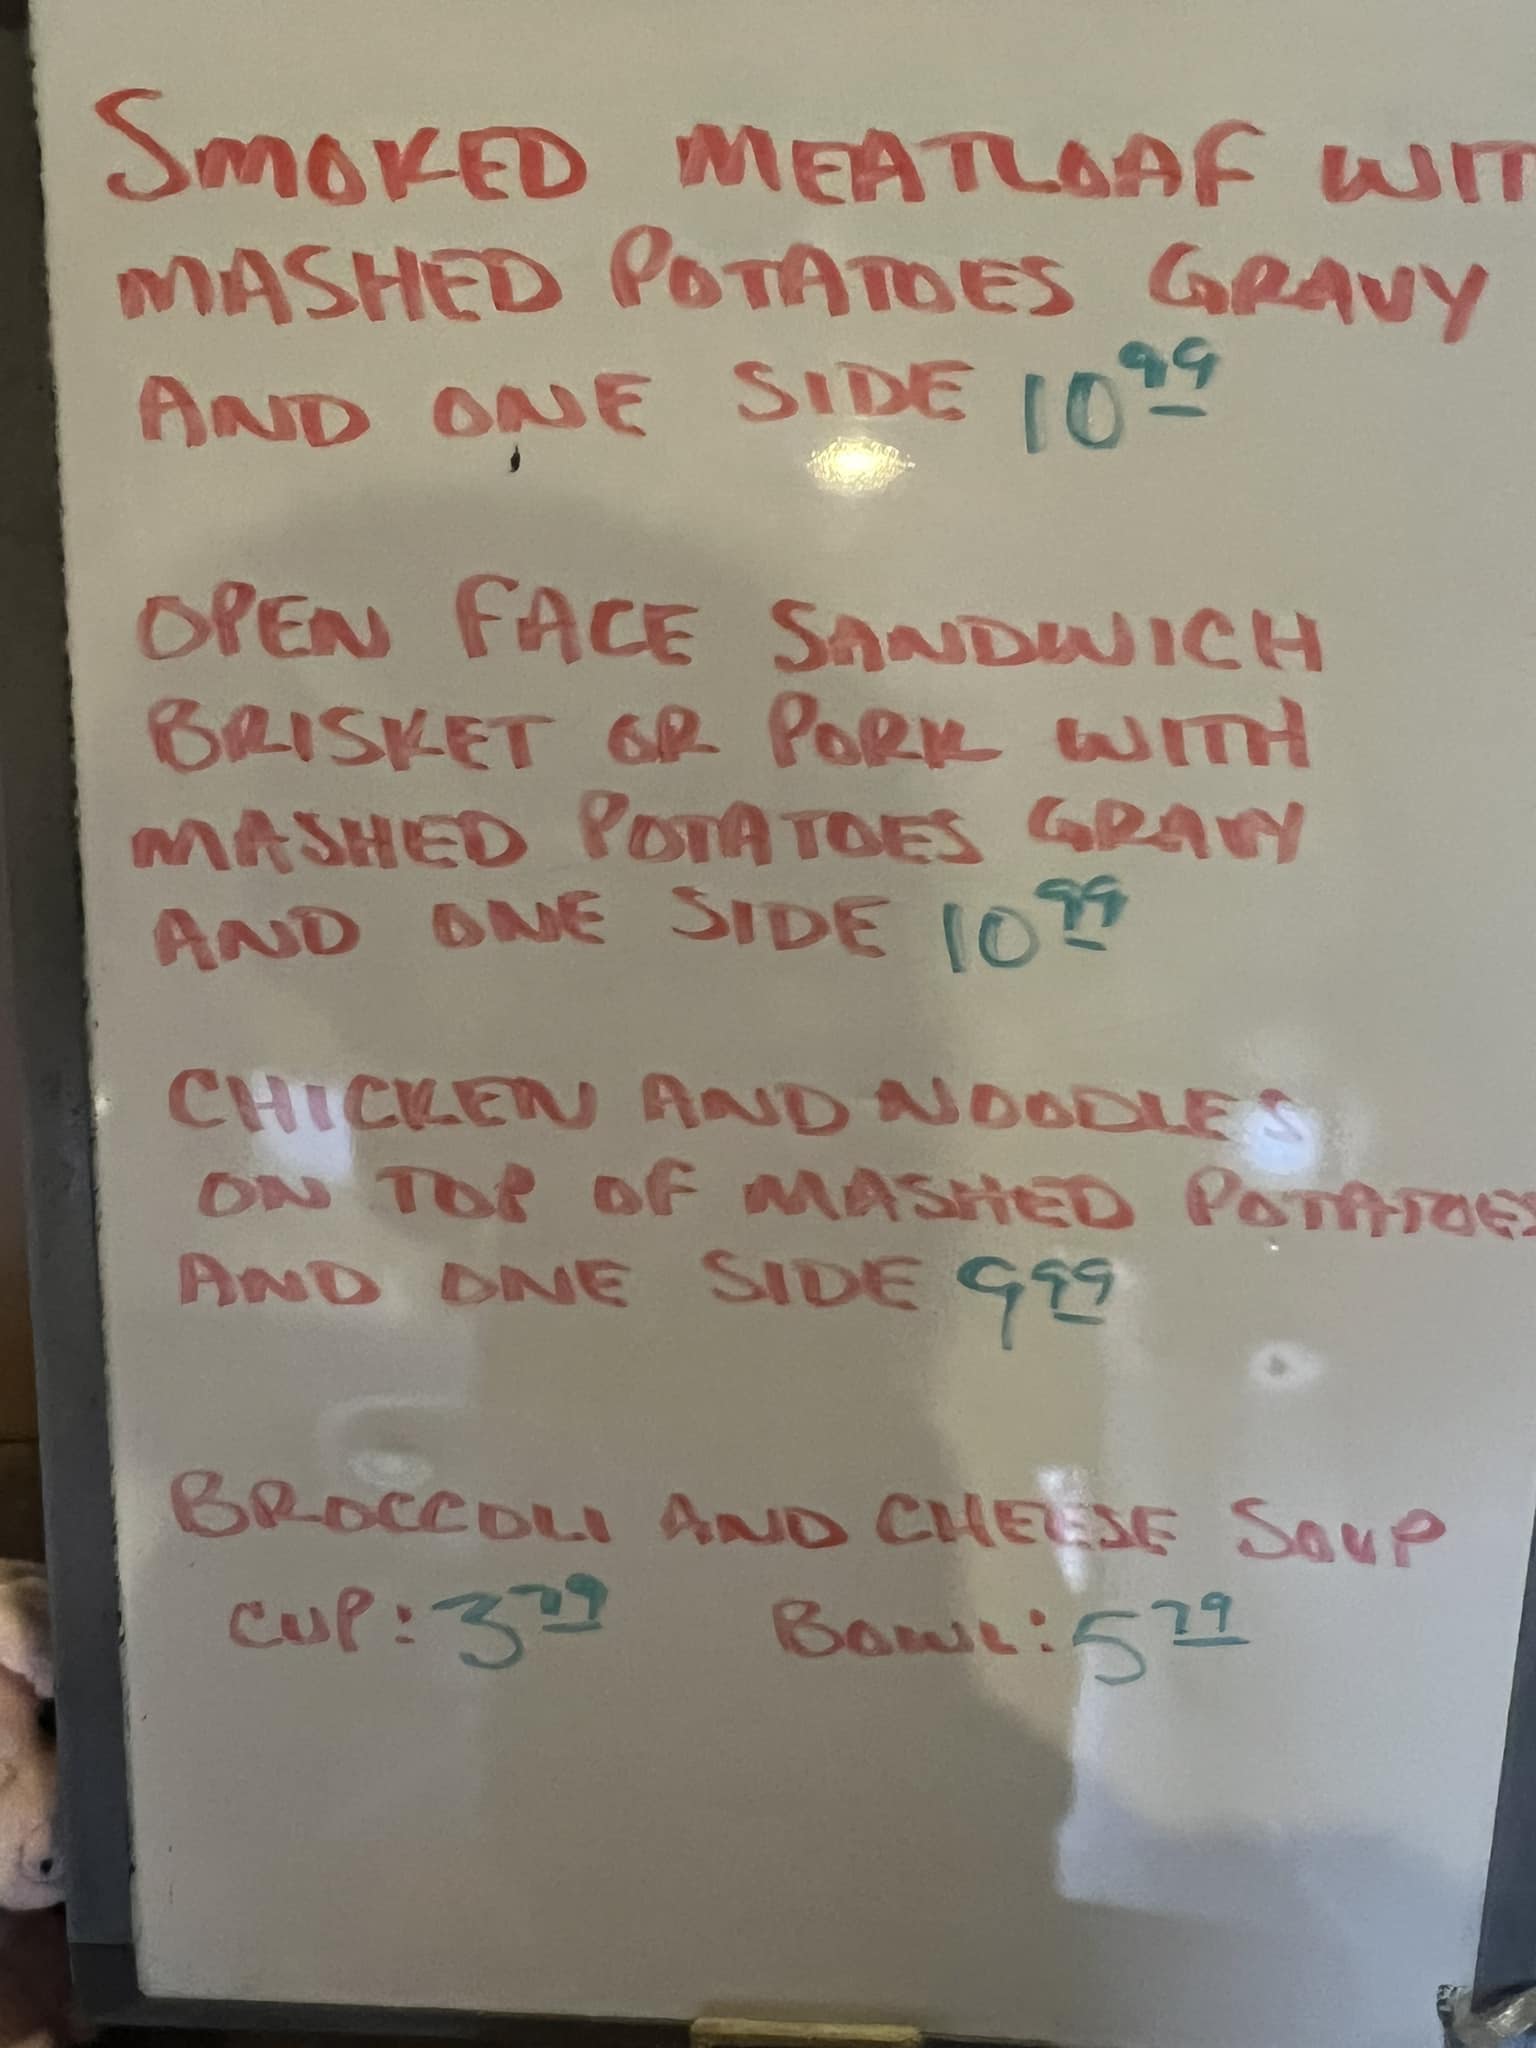 SMOKED MEATLOAF WIT
MASHED POTATOES GRAVY
AND ONE SIDE 10 99
OPEN FACE SANDWICH
BRISKET OR PORK WITH
MASHED POTATOES GRAVY
AND ONE SIDE 10 99
CHICKEN AND NOODLES
ON TOP OF MASHED POTATOES
AND ONE SIDE 9 99
BROCCOLI AND CHEESE SOUP
CUP: 3 79 BOWL: 5 79